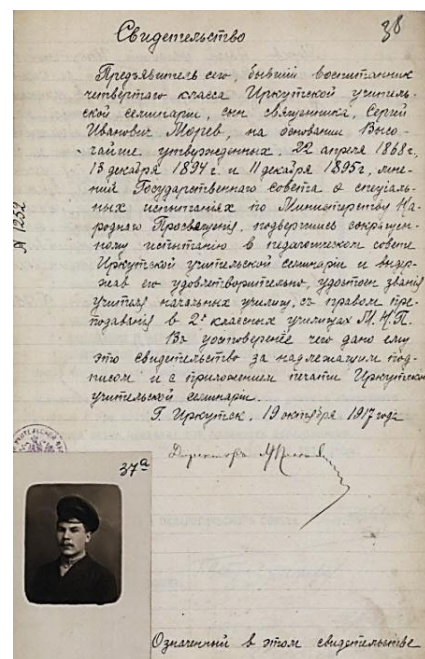 38
Свидетельство
Предъявитель сего, бывший воспитанник
четвертаго класса Иркутской учитель-
ской семинаріи, сын священника, Сергій
Иванович Морев, на основании Высо-
чайше утвержденных, 22 апреля 1868г,
13 декабря 1894 г. и 11 декабря 1895г, мне-
ний Государственнаго Совета о специаль-
ных испытаниях по Министерству На-
роднаго Просвещения, подвергшись сокращен-
ному испытанию в педагогическом совете
Иркутской учительской семинаріи и выдер-
жав его удовлетворительно, удостоен званія
учителя начальных училищ, съ правом пре-
подаванія в 2х классных училищах М.Н.П.
Въ удостоверенье чего дано ему
это свидетельство за надлежащим под-
писом и с приложением печати Иркутской
учительской семинаріи.
Г. Иркутск. 19 октября 1917 года
№ 1252
Директоръ
37а
Означенный в этом свидетельстве